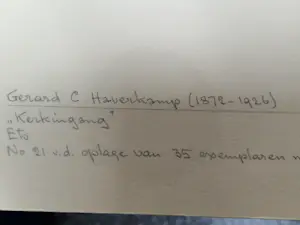 Gerard C Haverkamp (1872-1926)
„Kerkingang"
Ets
No 21 v.d. oplage van 35 exemplaren